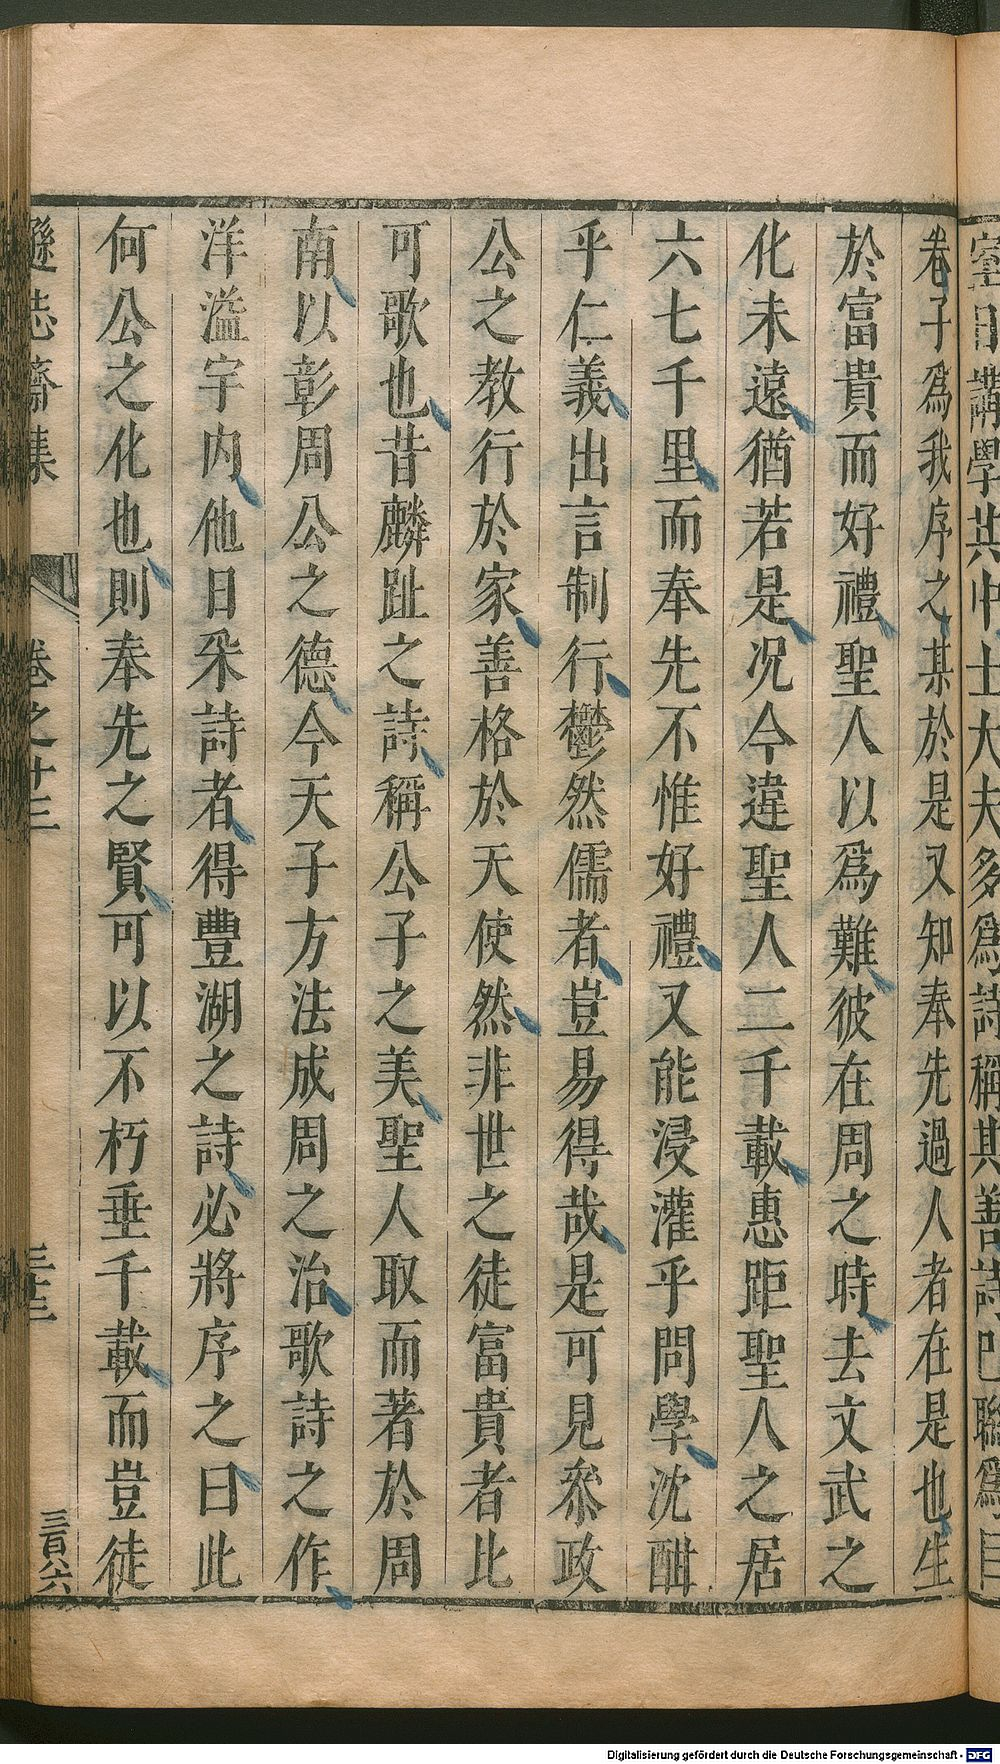 卷子爲我序之某於是又知奉先過人者在是也生
於富貴而好禮聖人以爲難彼在周之時去文武之
化未遠猶若是况今違聖人二千載惠距聖人之居
六七千里而奉先不惟好禮又能浸灌乎問學沈酣
乎仁義出言制行鬱然儒者豈易得哉是可見叅政
公之教行於家善格於天使然非世之徒富貴者比
可歌也昔麟趾之詩稱公子之美聖人取而著於周
南以彰周公之德今天子方法成周之治歌詩之作
洋溢宇内他日采詩者得豐湖之詩必將序之曰此
何公之化也則奉先之賢可以不朽垂千載而豈徒
遜志齋集
卷之十三
三十三
三百六六
Digitalisierung gefördert durch die Deutsche Forschungsgemeinschaft - DFG